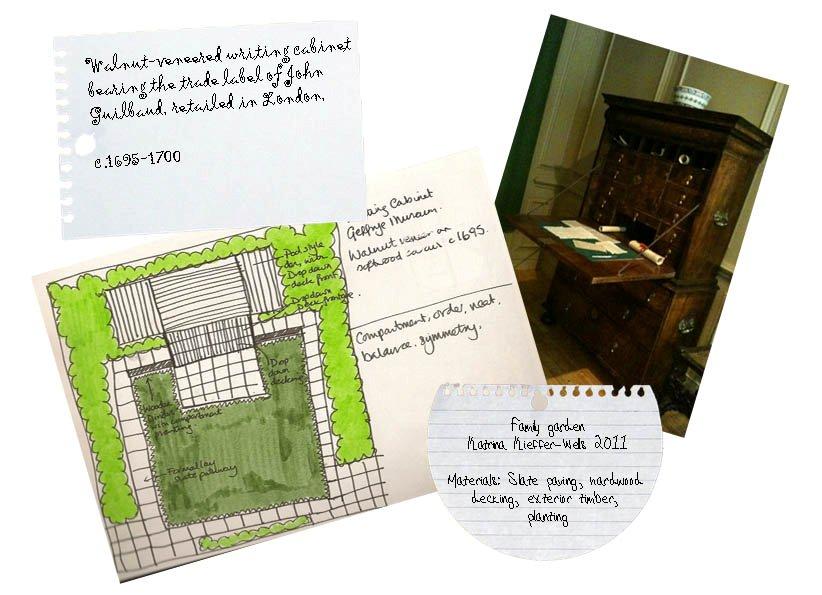 Walnut-veneered writing cabinet
bearing the trade label of John
Guilbaud, retailed in London,
c.1695-1700
Cabinet
Geffrye Museum.
Walnut veneer on
softwood carcus c1695.
Compartment, order, neat,
balance, symmetry.
Pod style
den, with
Drop down
deck front
Drop down
deck frontage
Drop
down
decking
with compartment
planting
Formal lay
slate pathway
Family garden
Katrina Kieffer-Wells 2011
Materials: Slate paving, hardwood
decking, exterior timber,
planting